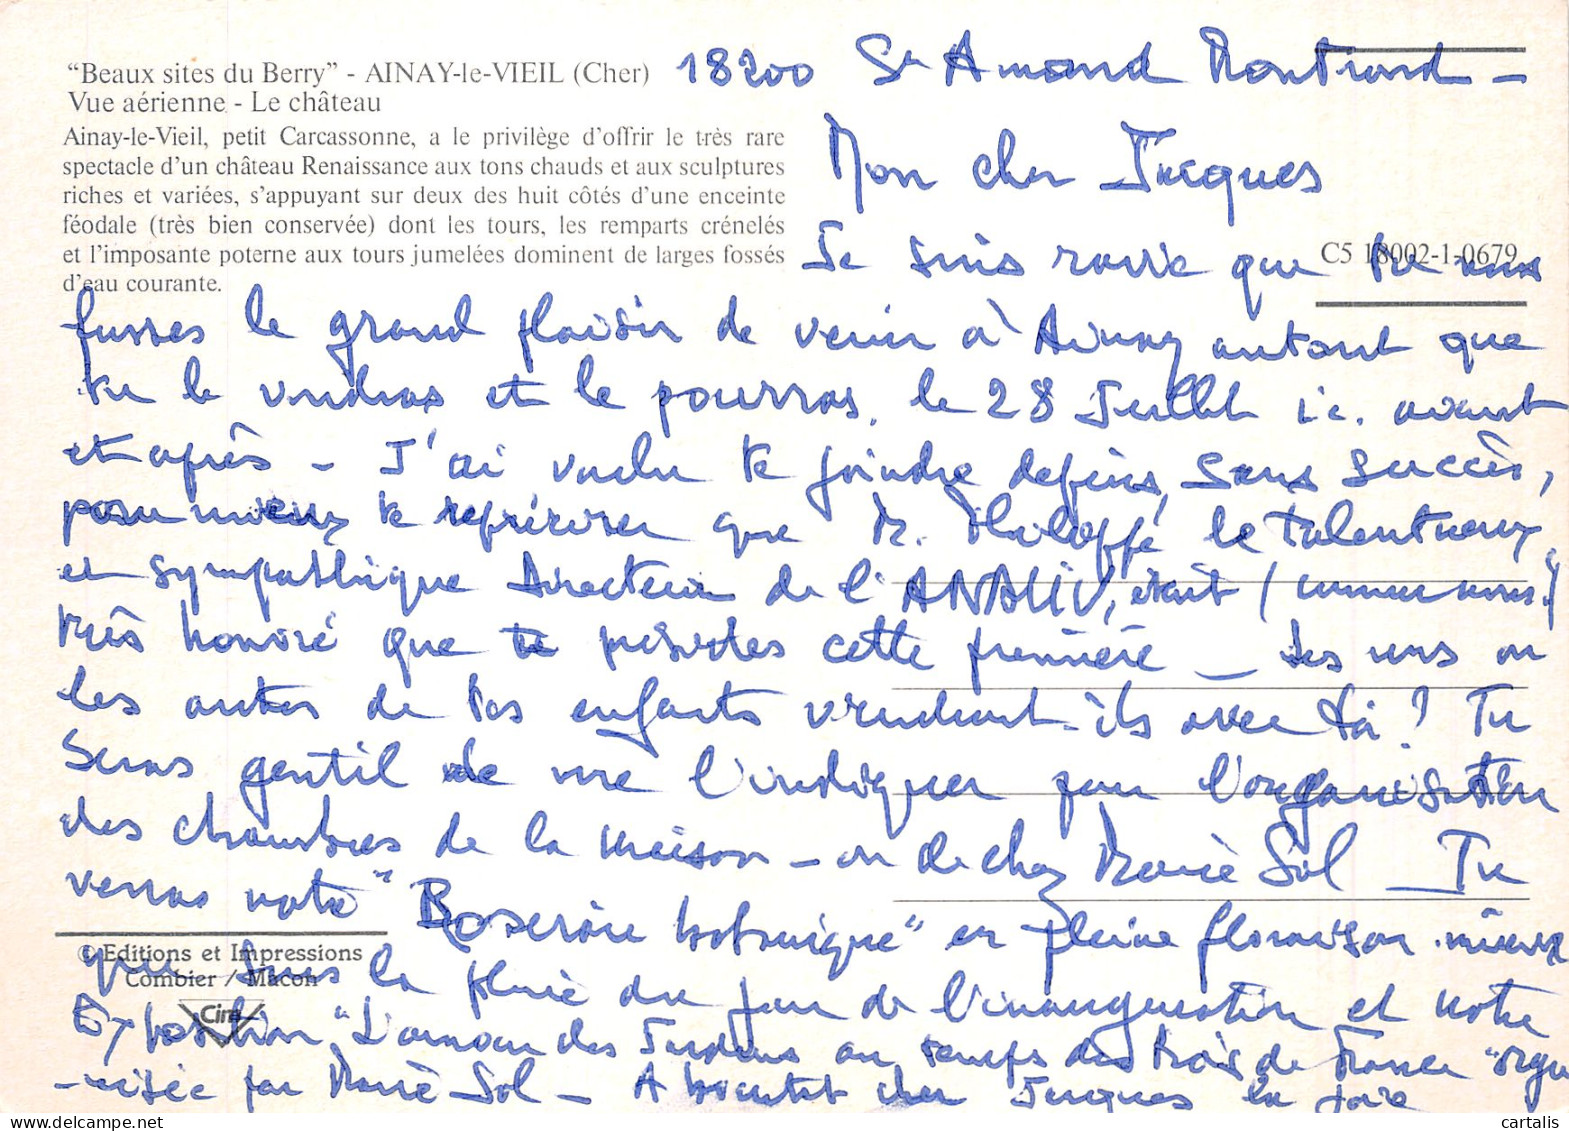 "Beaux sites du Berry" - AINAY-le-VIEIL (Cher)
Vue aérienne - Le château
Ainay-le-Vieil, petit Carcassonne, a le privilège d'offrir le très rare
spectacle d'un château Renaissance aux tons chauds et aux sculptures
riches et variées, s'appuyant sur deux des huit côtés d'une enceinte
féodale (très bien conservée) dont les tours, les remparts crénelés
et l'imposante poterne aux tours jumelées dominent de larges fossés
d'eau courante.
C5 18002-1-0679
18200 St Amand Montrond -
Mon cher Jacques
Je suis ravie que tu nous
fasses le grand plaisir de venir à Ainay autant que
tu le voudras et le pourras, le 28 Juillet i.e. avant
et après - J'ai voulu te joindre depuis, sans succès,
pour mieux te préciser que M. le talentueux
et sympathique Directeur de l' était (comme nous!)
très honoré que tu présides cette première - Les uns ou
les autres de tes enfants viendront-ils avec toi ? Tu
seras gentil de me l'indiquer pour l'organisation
des chambres de la maison - ou de chez Marie Sol - Tu
verras notre "Roseraie botanique" en pleine floraison mieux
que sous la pluie du jour de l'inauguration et notre
Exposition "L'amour des Jardins au temps des Rois de France" orga
-nisée par Marie Sol - A bientôt cher Jacques la joie
© Editions et Impressions
Combier / Macon
Cim
cartalis.com